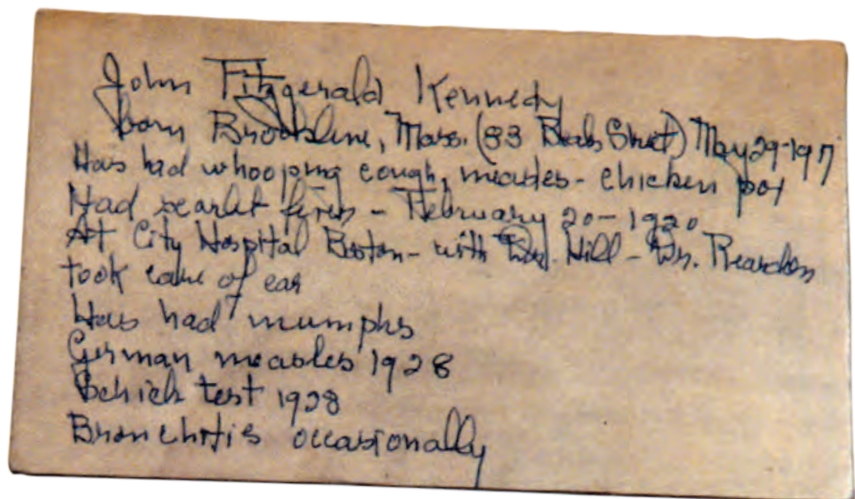 John Fitzgerald Kennedy
born Brookline, Mass. (83 Beals Street) May 29-1917
Has had whooping cough, measles - chicken pox
Had scarlet fever - February 20 - 1920
At City Hospital Boston - with Dr. Hill - Dr. Reardon
took care of ear
Has had mumphs
German measles 1928
Schick test 1928
Bronchitis occasionally